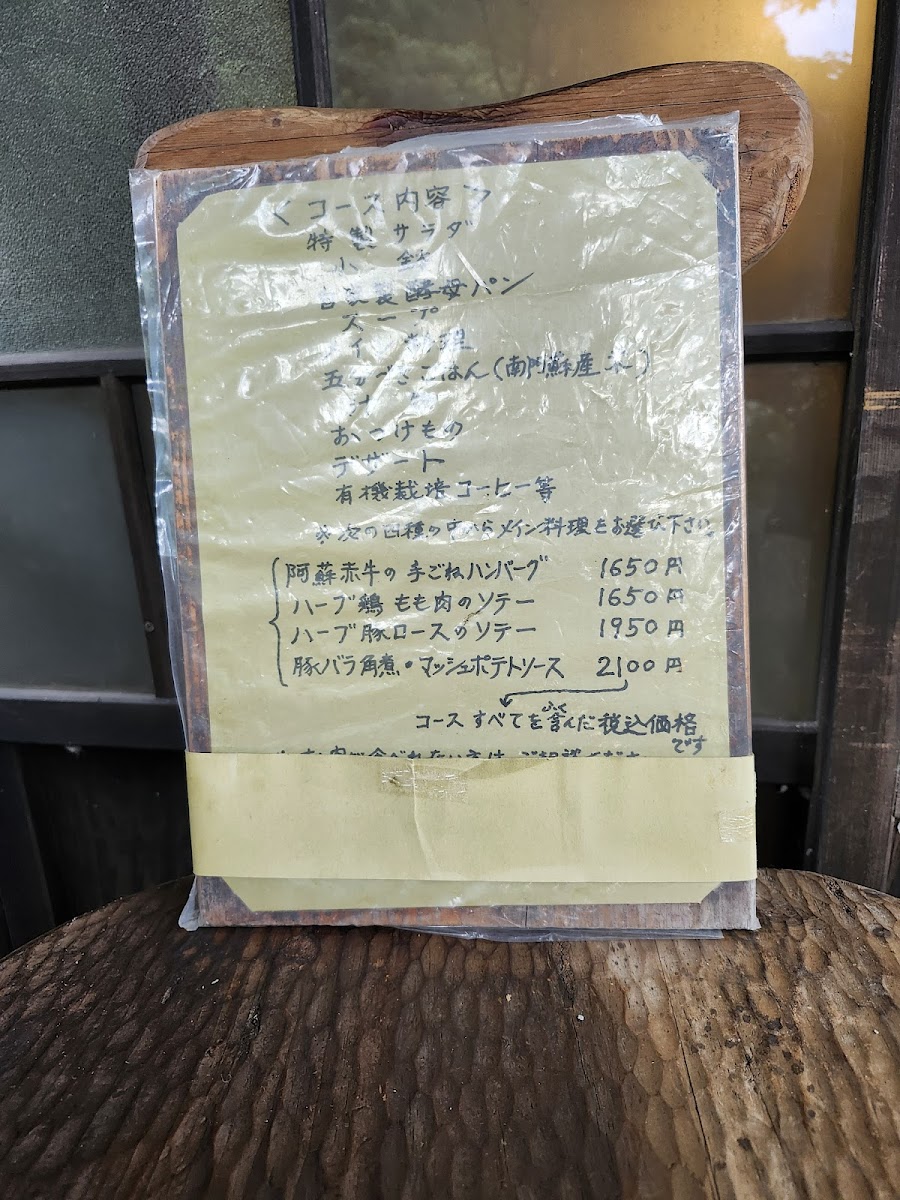 <コース内容>
特製サラダ
小鉢
自家製酵母パン
スープ
メイン料理
五分づきごはん(南阿蘇産米)
おつけもの
デザート
有機栽培コーヒー等
※次の四種の中からメイン料理をお選び下さい。
阿蘇赤牛の手ごねハンバーグ 1650円
ハーブ鶏もも肉のソテー 1650円
ハーブ豚ロースのソテー 1950円
豚バラ角煮・マッシュポテトソース 2100円
ふく
コースすべてを含んだ税込価格
です